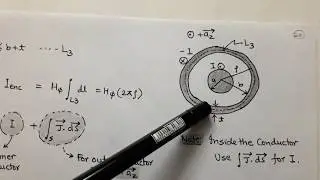 ≤ b+t ..... L₃
I_enc = H_φ ∫_L₃ dl = H_φ (2πρ)
I + ∫_S J⃗.dS⃗
For out
ductor
a⃗_z
+a⃗_z
L₃
-I
I
ρ
a
b
t
Note: Inside the Conductor
Use ∫ J⃗.dS⃗ for I.